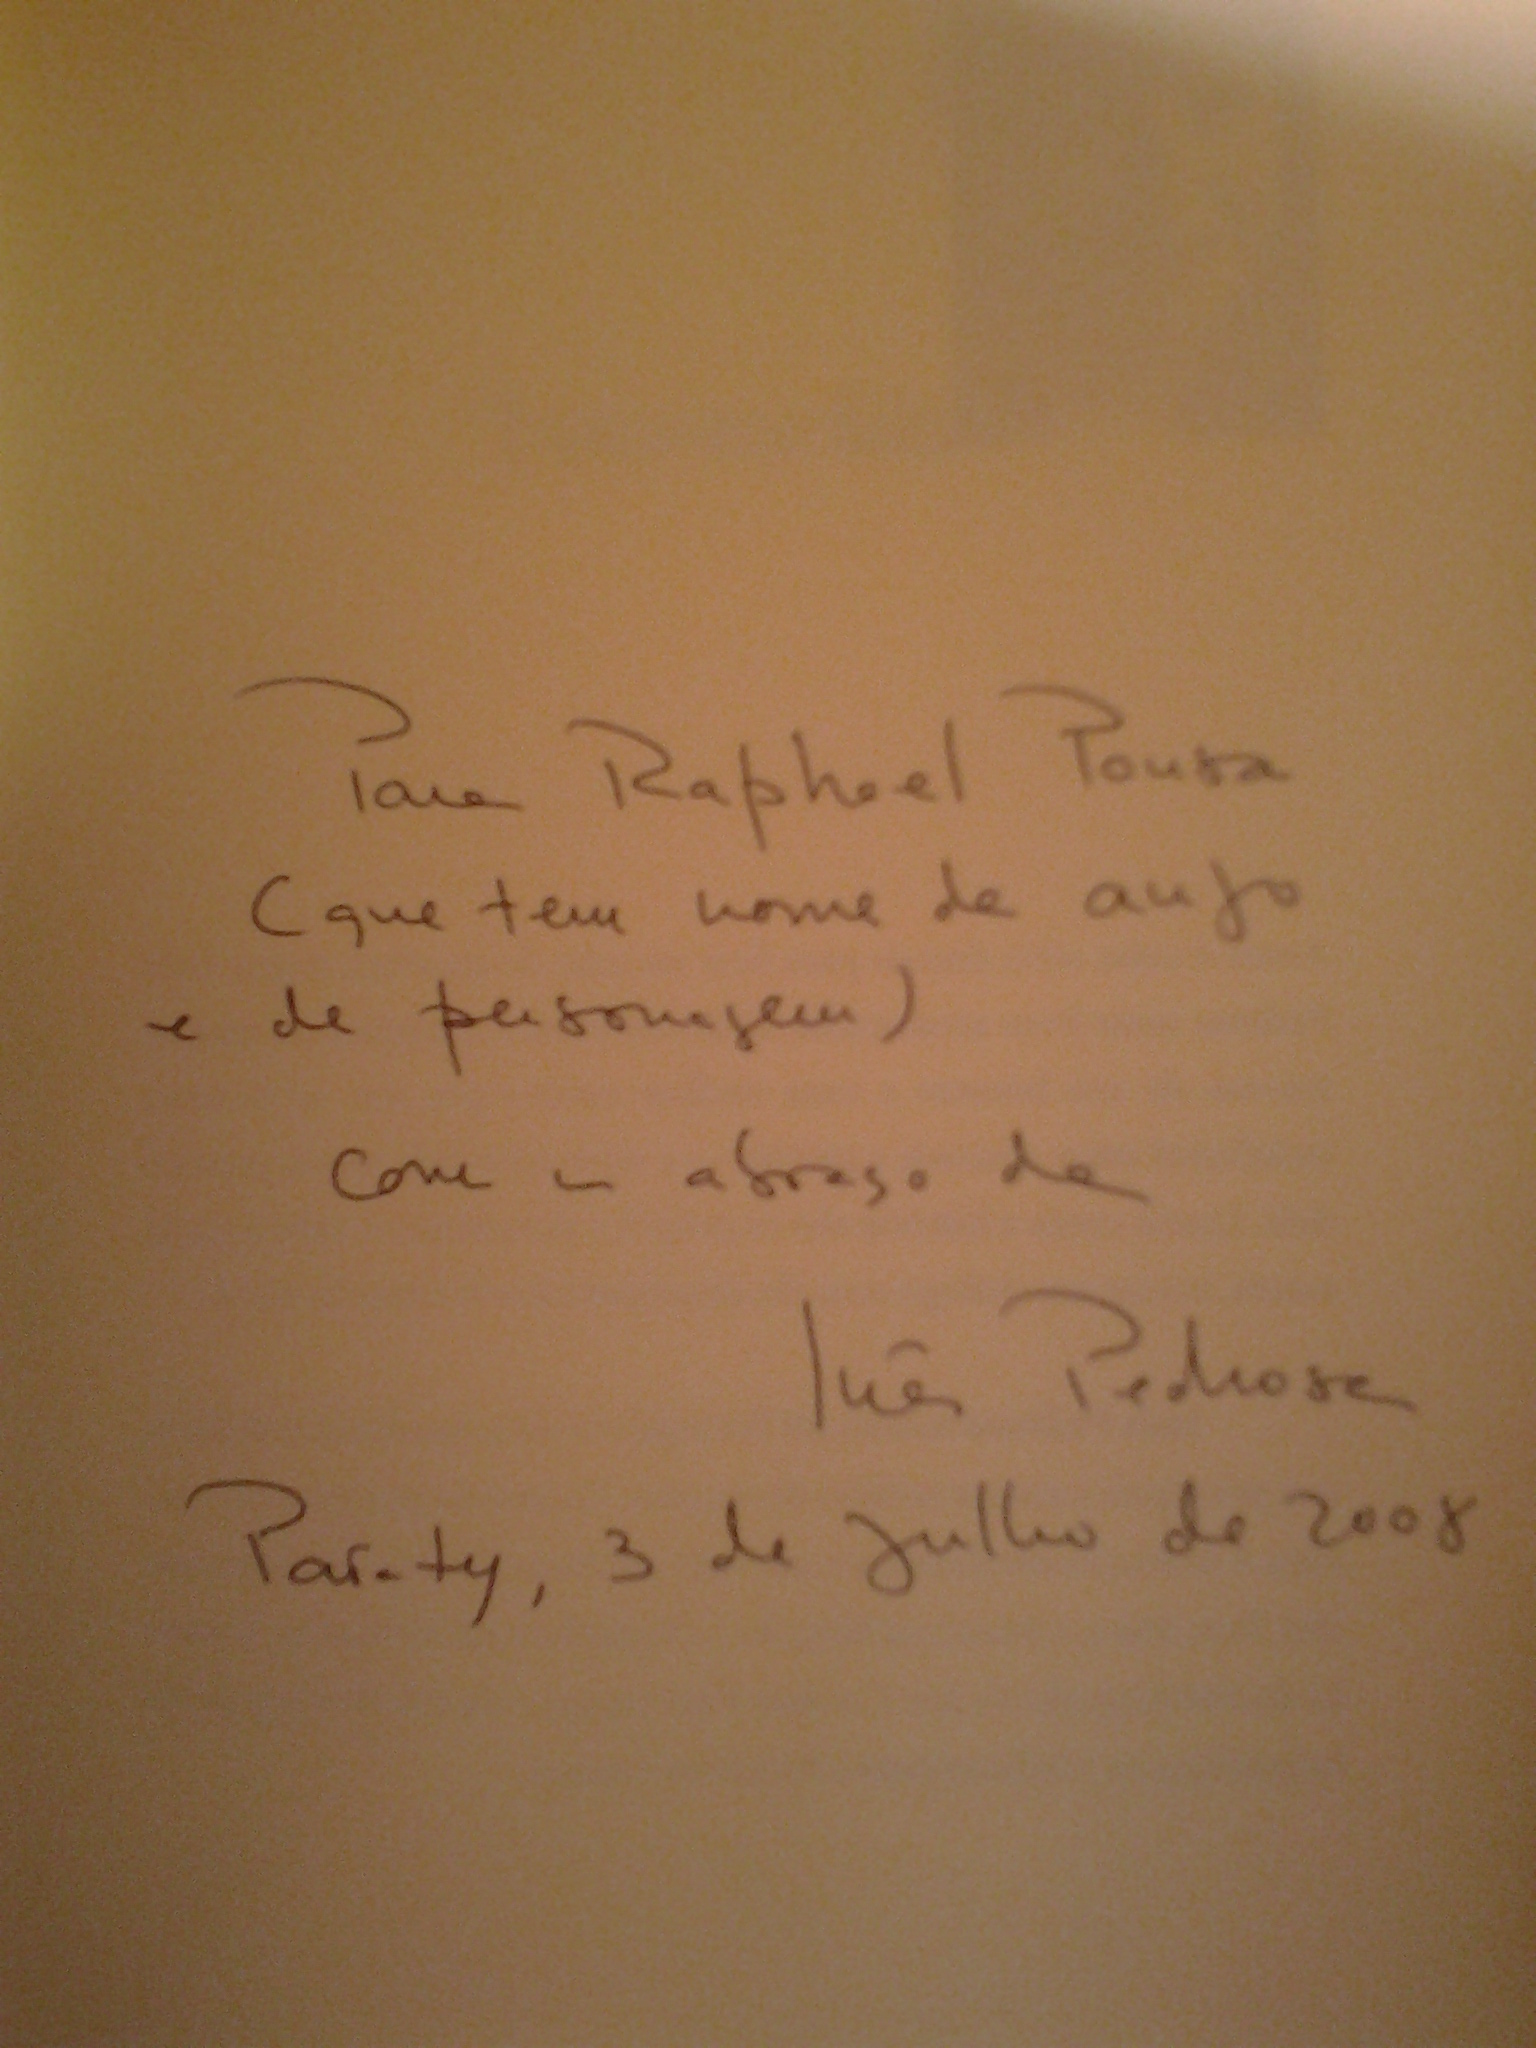 Para Raphael Pousa
(que tem nome de anjo
e de personagem)
com um abraço da
Inês Pedrosa
Paraty, 3 de julho de 2008